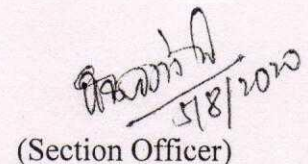 5/8/2020
(Section Officer)